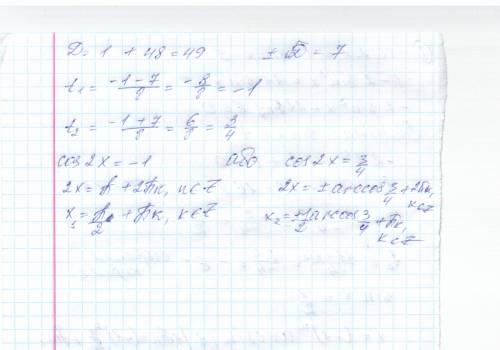 D = 1 + 48 = 49   ± √D = 7
t₁ = (-1-7)/8 = -8/8 = -1
t₂ = (-1+7)/8 = 6/8 = 3/4
cos2x = -1   або   cos2x = 3/4
2x = π + 2πк, к∈Z   2x = ± arccos 3/4 + 2πк, к∈Z
x₁ = π/2 + πк, к∈Z   x₂ = ±1/2 arccos 3/4 + πк, к∈Z